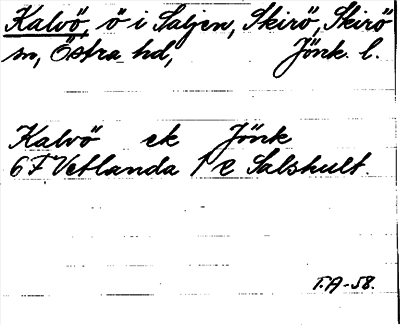 Kalvö, ö i Saljen, Skirö, Skirö
sn, Östra hd, Jönk. l.
Kalvö ek Jönk
6 F Vetlanda 1 e Salshult.
T.A-58.